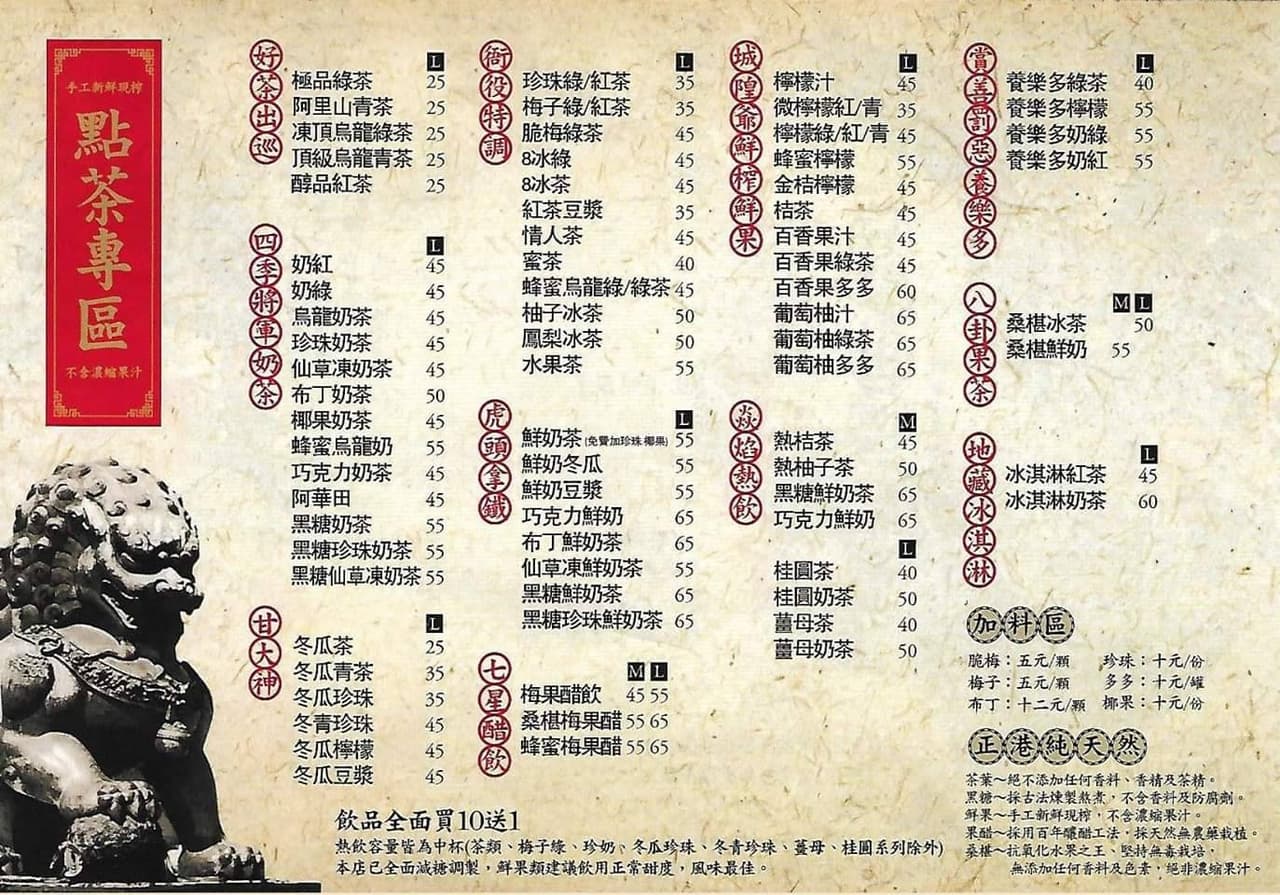 手工新鮮現榨
點茶專區
不含濃縮果汁
好茶出巡
L
極品綠茶 25
阿里山青茶 25
凍頂烏龍綠茶 25
頂級烏龍青茶 25
醇品紅茶 25
四季將軍奶茶
L
奶紅 45
奶綠 45
烏龍奶茶 45
珍珠奶茶 45
仙草凍奶茶 45
布丁奶茶 50
椰果奶茶 45
蜂蜜烏龍奶 55
巧克力奶茶 45
阿華田 45
黑糖奶茶 55
黑糖珍珠奶茶 55
黑糖仙草凍奶茶 55
甘大神
L
冬瓜茶 25
冬瓜青茶 35
冬瓜珍珠 35
冬青珍珠 45
冬瓜檸檬 45
冬瓜豆漿 45
衙役特調
L
珍珠綠/紅茶 35
梅子綠/紅茶 35
脆梅綠茶 45
8冰綠 45
8冰茶 45
紅茶豆漿 35
情人茶 45
蜜茶 40
蜂蜜烏龍綠/綠茶 45
柚子冰茶 50
鳳梨冰茶 50
水果茶 55
虎頭拿鐵
L
鮮奶茶 (免費加珍珠 椰果) 55
鮮奶冬瓜 55
鮮奶豆漿 55
巧克力鮮奶 65
布丁鮮奶茶 65
仙草凍鮮奶茶 55
黑糖鮮奶茶 65
黑糖珍珠鮮奶茶 65
七星醋飲
M L
梅果醋飲 45 55
桑椹梅果醋 55 65
蜂蜜梅果醋 55 65
城隍爺鮮榨鮮果
L
檸檬汁 45
微檸檬紅/青 35
檸檬綠/紅/青 45
蜂蜜檸檬 55
金桔檸檬 45
桔茶 45
百香果汁 45
百香果綠茶 45
百香果多多 60
葡萄柚汁 65
葡萄柚綠茶 65
葡萄柚多多 65
焱焰熱飲
M
熱桔茶 45
熱柚子茶 50
黑糖鮮奶茶 65
巧克力鮮奶 65
L
桂圓茶 40
桂圓奶茶 50
薑母茶 40
薑母奶茶 50
賞善罰惡養樂多
L
養樂多綠茶 40
養樂多檸檬 55
養樂多奶綠 55
養樂多奶紅 55
八卦果茶
M L
桑椹冰茶 50
桑椹鮮奶 55
地藏冰淇淋
L
冰淇淋紅茶 45
冰淇淋奶茶 60
加料區
脆梅：五元/顆 珍珠：十元/份
梅子：五元/顆 多多：十元/罐
布丁：十二元/顆 椰果：十元/份
正港純天然
茶葉～絕不添加任何香料、香精及茶精。
黑糖～採古法煉製熬煮，不含香料及防腐劑。
鮮果～手工新鮮現榨，不含濃縮果汁。
果醋～採用百年釀醋工法，採天然無農藥栽植。
桑椹～抗氧化水果之王、堅持無毒栽培，
無添加任何香料及色素，絕非濃縮果汁。
飲品全面買10送1
熱飲容量皆為中杯(茶類、梅子綠、珍奶、冬瓜珍珠、冬青珍珠、薑母、桂圓系列除外)
本店已全面減糖調製，鮮果類建議飲用正常甜度，風味最佳。